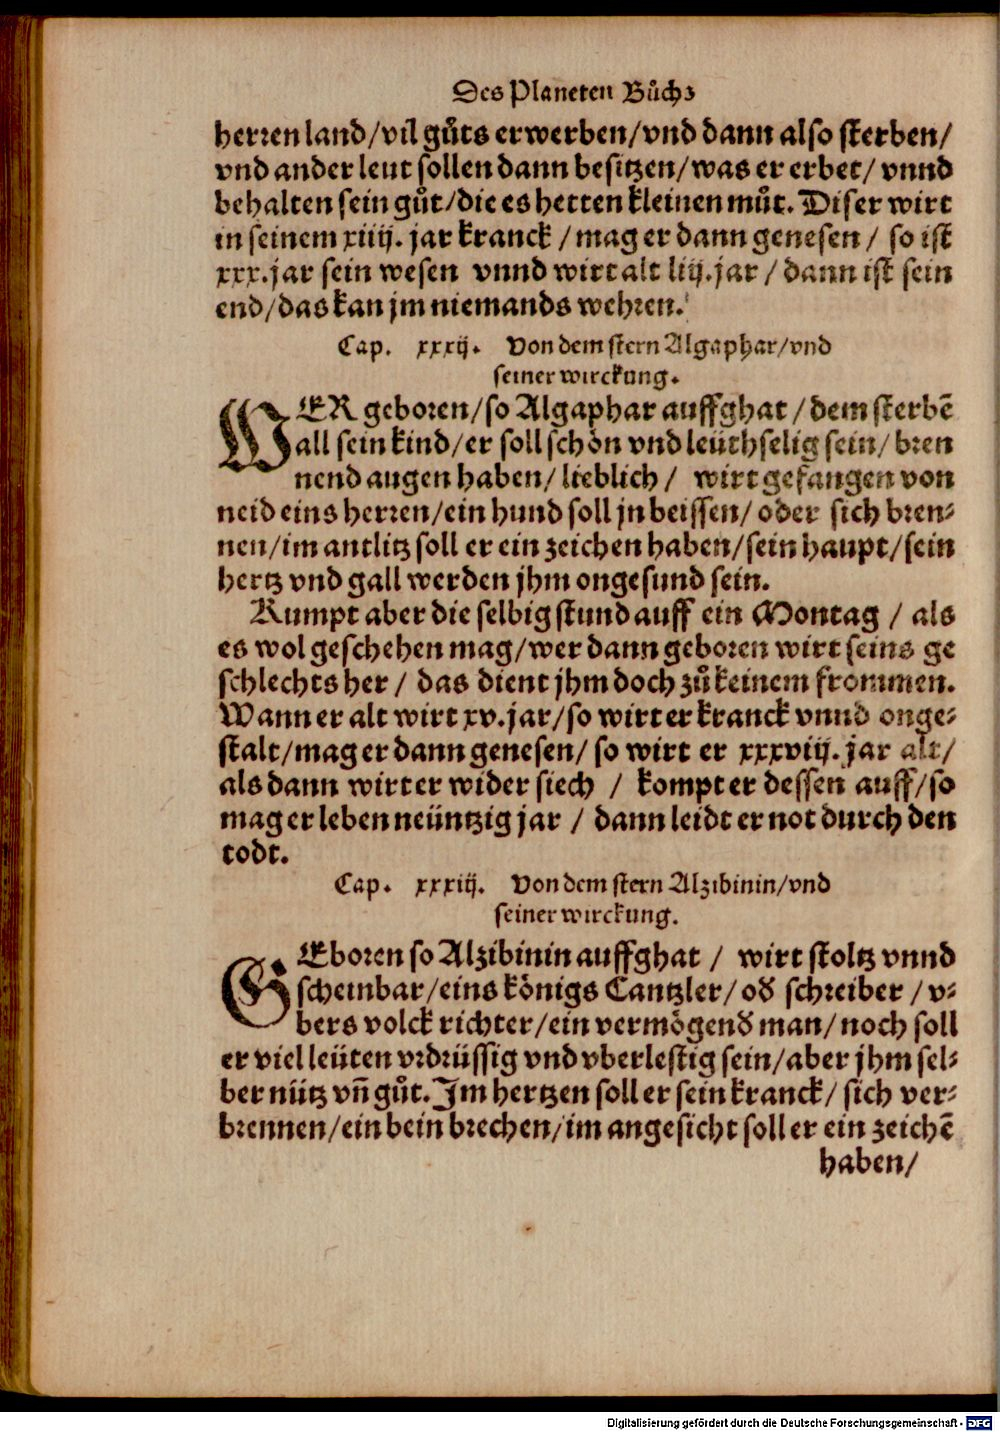 Des Planeten Bůchs
herren land/vil gůts erwerben/vnd dann also sterben/
vnd ander leut sollen dann besitzen/was er erbet/ vnnd
behalten sein gůt/die es hetten kleinen můt. Diser wirt
in seinem xiiij. jar kranck /mag er dann genesen / so ist
xxx.jar sein wesen vnnd wirt alt liij.jar / dann ist sein
end/das kan jm niemands wehren.
Cap. xxxij. Von dem stern Algaphar/vnd
seiner wirckung.
WER geboren/so Algaphar auffghat /dem sterbē
all sein kind/er soll schön vnd leüthselig sein/ bren
nend augen haben/ lieblich / wirt gefangen von
neid eins herren/ein hund soll jn beissen/ oder sich bren⸗
nen/im antlitz soll er ein zeichen haben/sein haupt/sein
hertz vnd gall werden jhm ongesund sein.
Kumpt aber die selbig stund auff ein Montag / als
es wol geschehen mag/wer dann geboren wirt seins ge
schlechts her / das dient jhm doch zů keinem frommen.
Wann er alt wirt xv.jar/so wirt er kranck vnnd onge⸗
stalt/mag er dann genesen/ so wirt er xxxviij. jar alt/
als dann wirt er wider siech / kompt er dessen auff/so
mag er leben neüntzig jar / dann leidt er not durch den
todt.
Cap. xxxiij. Von dem stern Alzibinin/vnd
seiner wirckung.
GEboren so Alzibinin auffghat / wirt stoltz vnnd
scheinbar/eins königs Cantzler/od̕ schreiber /v⸗
bers volck richter/ein vermögend̕ man/noch soll
er viel leüten vrdrüssig vnd vberlestig sein/aber jhm sel⸗
ber nütz vn̄ gůt. Im hertzen soll er sein kranck/ sich ver⸗
brennen/ein bein brechen/im angesicht soll er ein zeichē
haben/
Digitalisierung gefördert durch die Deutsche Forschungsgemeinschaft - DFG